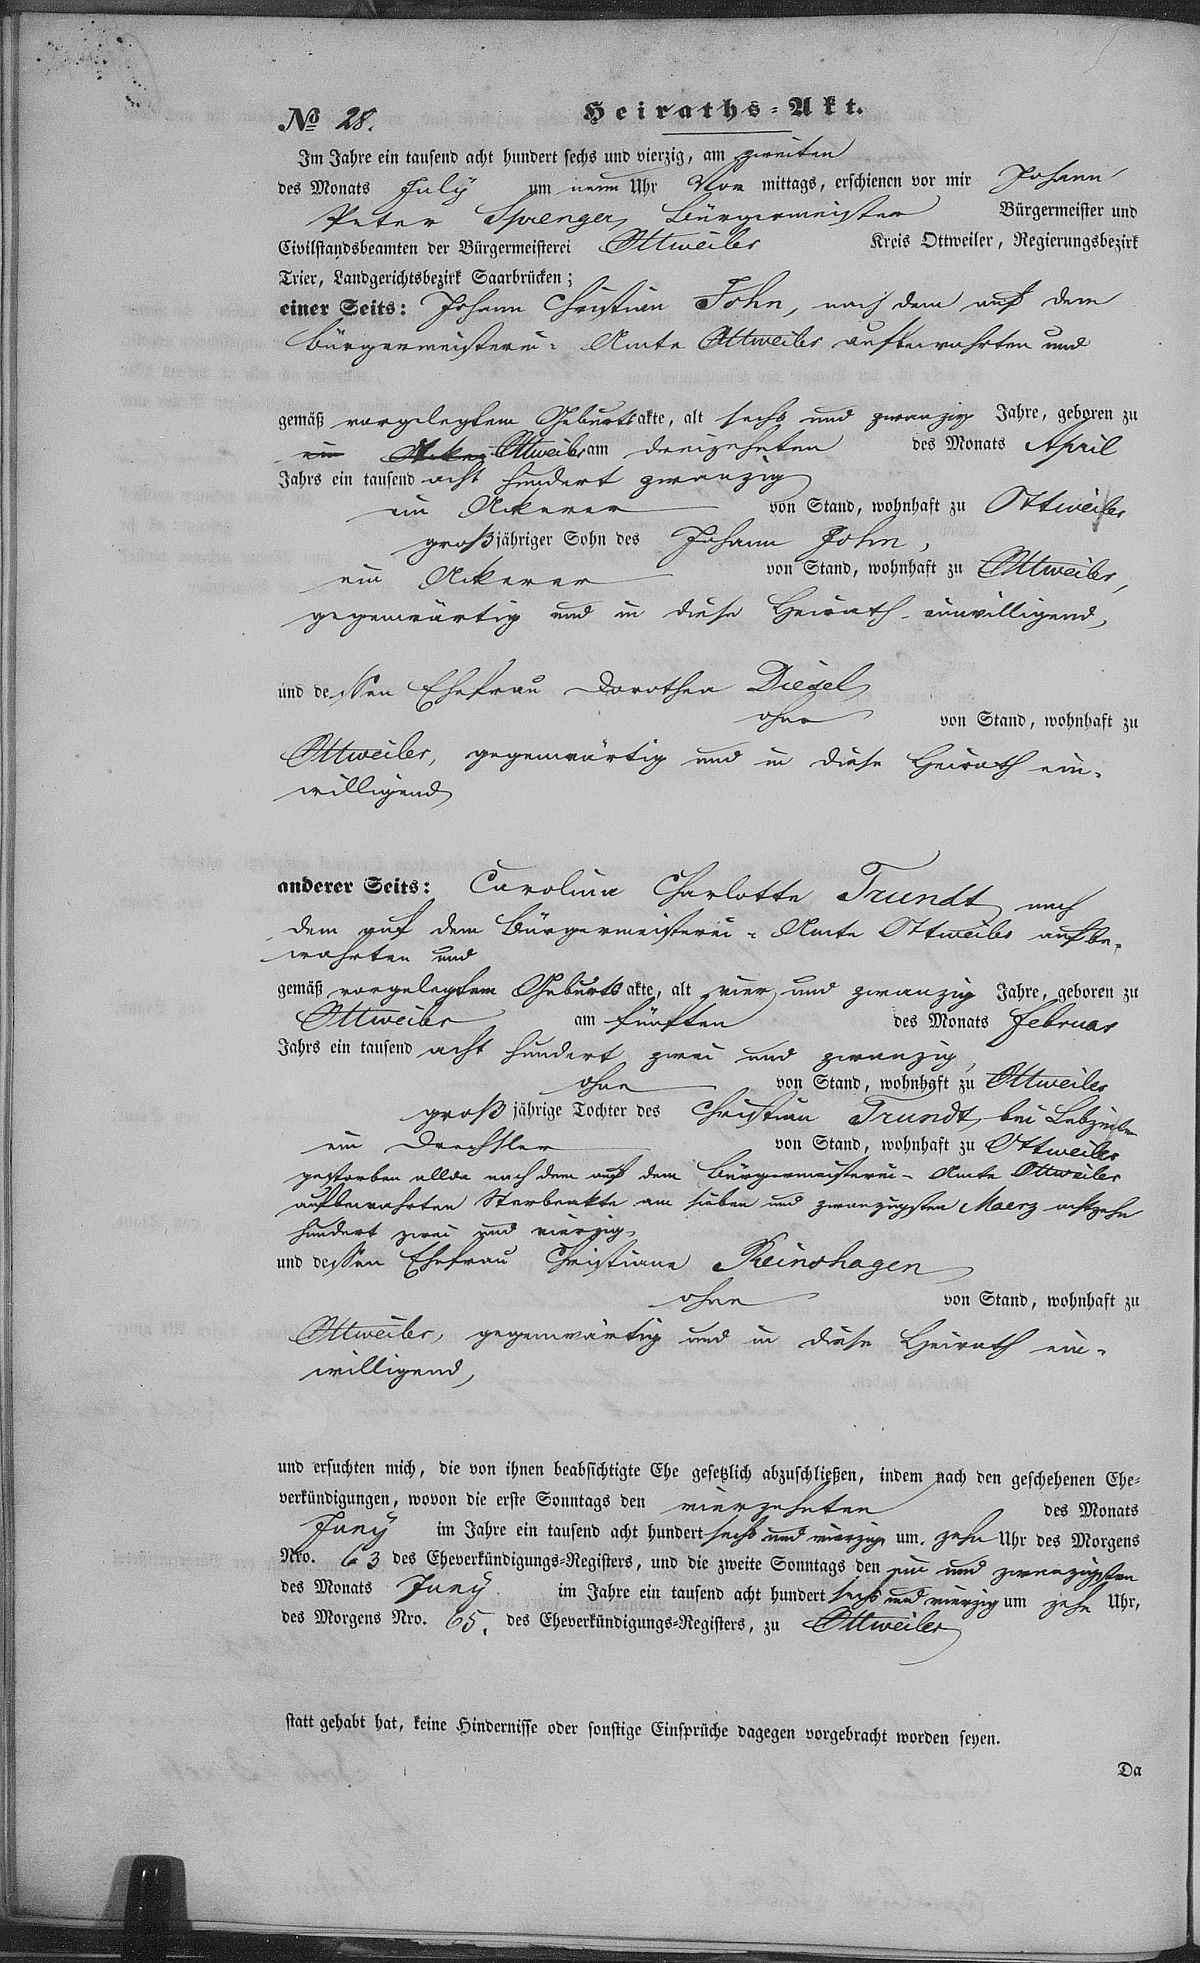 № 28.
Heiraths-Akt.
Im Jahre ein tausend acht hundert sechs und vierzig, am zweiten
des Monats July um neun Uhr Vor mittags, erschienen vor mir Johann
Peter Sprenger, Bürgermeister Bürgermeister und
Civilstandsbeamten der Bürgermeisterei Ottweiler Kreis Ottweiler, Regierungsbezirk
Trier, Landgerichtsbezirk Saarbrücken;
einer Seits: Johann Christian John, nach dem auf dem
Bürgermeisterei-Amte Ottweiler aufbewahrten und
gemäß vorgelegtem Geburtsakte, alt sechs und zwanzig Jahre, geboren zu
ein Acker Ottweiler am dreizehnten des Monats April
Jahrs ein tausend acht hundert zwanzig
ein Ackerer von Stand, wohnhaft zu Ottweiler
großjähriger Sohn des Johann John,
ein Ackerer von Stand, wohnhaft zu Ottweiler,
gegenwärtig und in diese Heirath einwilligend,
und dessen Ehefrau Dorothea Diesel
ohne von Stand, wohnhaft zu
Ottweiler, gegenwärtig und in diese Heirath ein-
willigend
anderer Seits: Carolina Charlotte Trundt nach
dem auf dem Bürgermeisterei-Amte Ottweiler aufbe-
wahrten und
gemäß vorgelegtem Geburtsakte, alt vier und zwanzig Jahre, geboren zu
Ottweiler am fünften des Monats Februar
Jahrs ein tausend acht hundert zwei und zwanzig,
ohne von Stand, wohnhaft zu Ottweiler
großjährige Tochter des Christian Trundt, bei Lebzeiten
ein Drechsler von Stand, wohnhaft zu Ottweiler
gestorben allda nach dem auf dem Bürgermeisterei-Amte Ottweiler
aufbewahrten Sterbeakte am sieben und zwanzigsten Maerz achtzehn
hundert zwei und vierzig,
und dessen Ehefrau Christiane Reinshagen
ohne von Stand, wohnhaft zu
Ottweiler, gegenwärtig und in diese Heirath ein-
willigend,
und ersuchten mich, die von ihnen beabsichtigte Ehe gesetzlich abzuschließen, indem nach den geschehenen Ehe-
verkündigungen, wovon die erste Sonntags den vierzehnten des Monats
Juny im Jahre ein tausend acht hundert sechs und vierzig um zehn Uhr des Morgens
Nro. 63 des Eheverkündigungs-Registers, und die zweite Sonntags den ein und zwanzigsten
des Monats Juny im Jahre ein tausend acht hundert sechs und vierzig um zehn Uhr,
des Morgens Nro. 65. des Eheverkündigungs-Registers, zu Ottweiler
statt gehabt hat, keine Hindernisse oder sonstige Einsprüche dagegen vorgebracht worden seyen.
Da